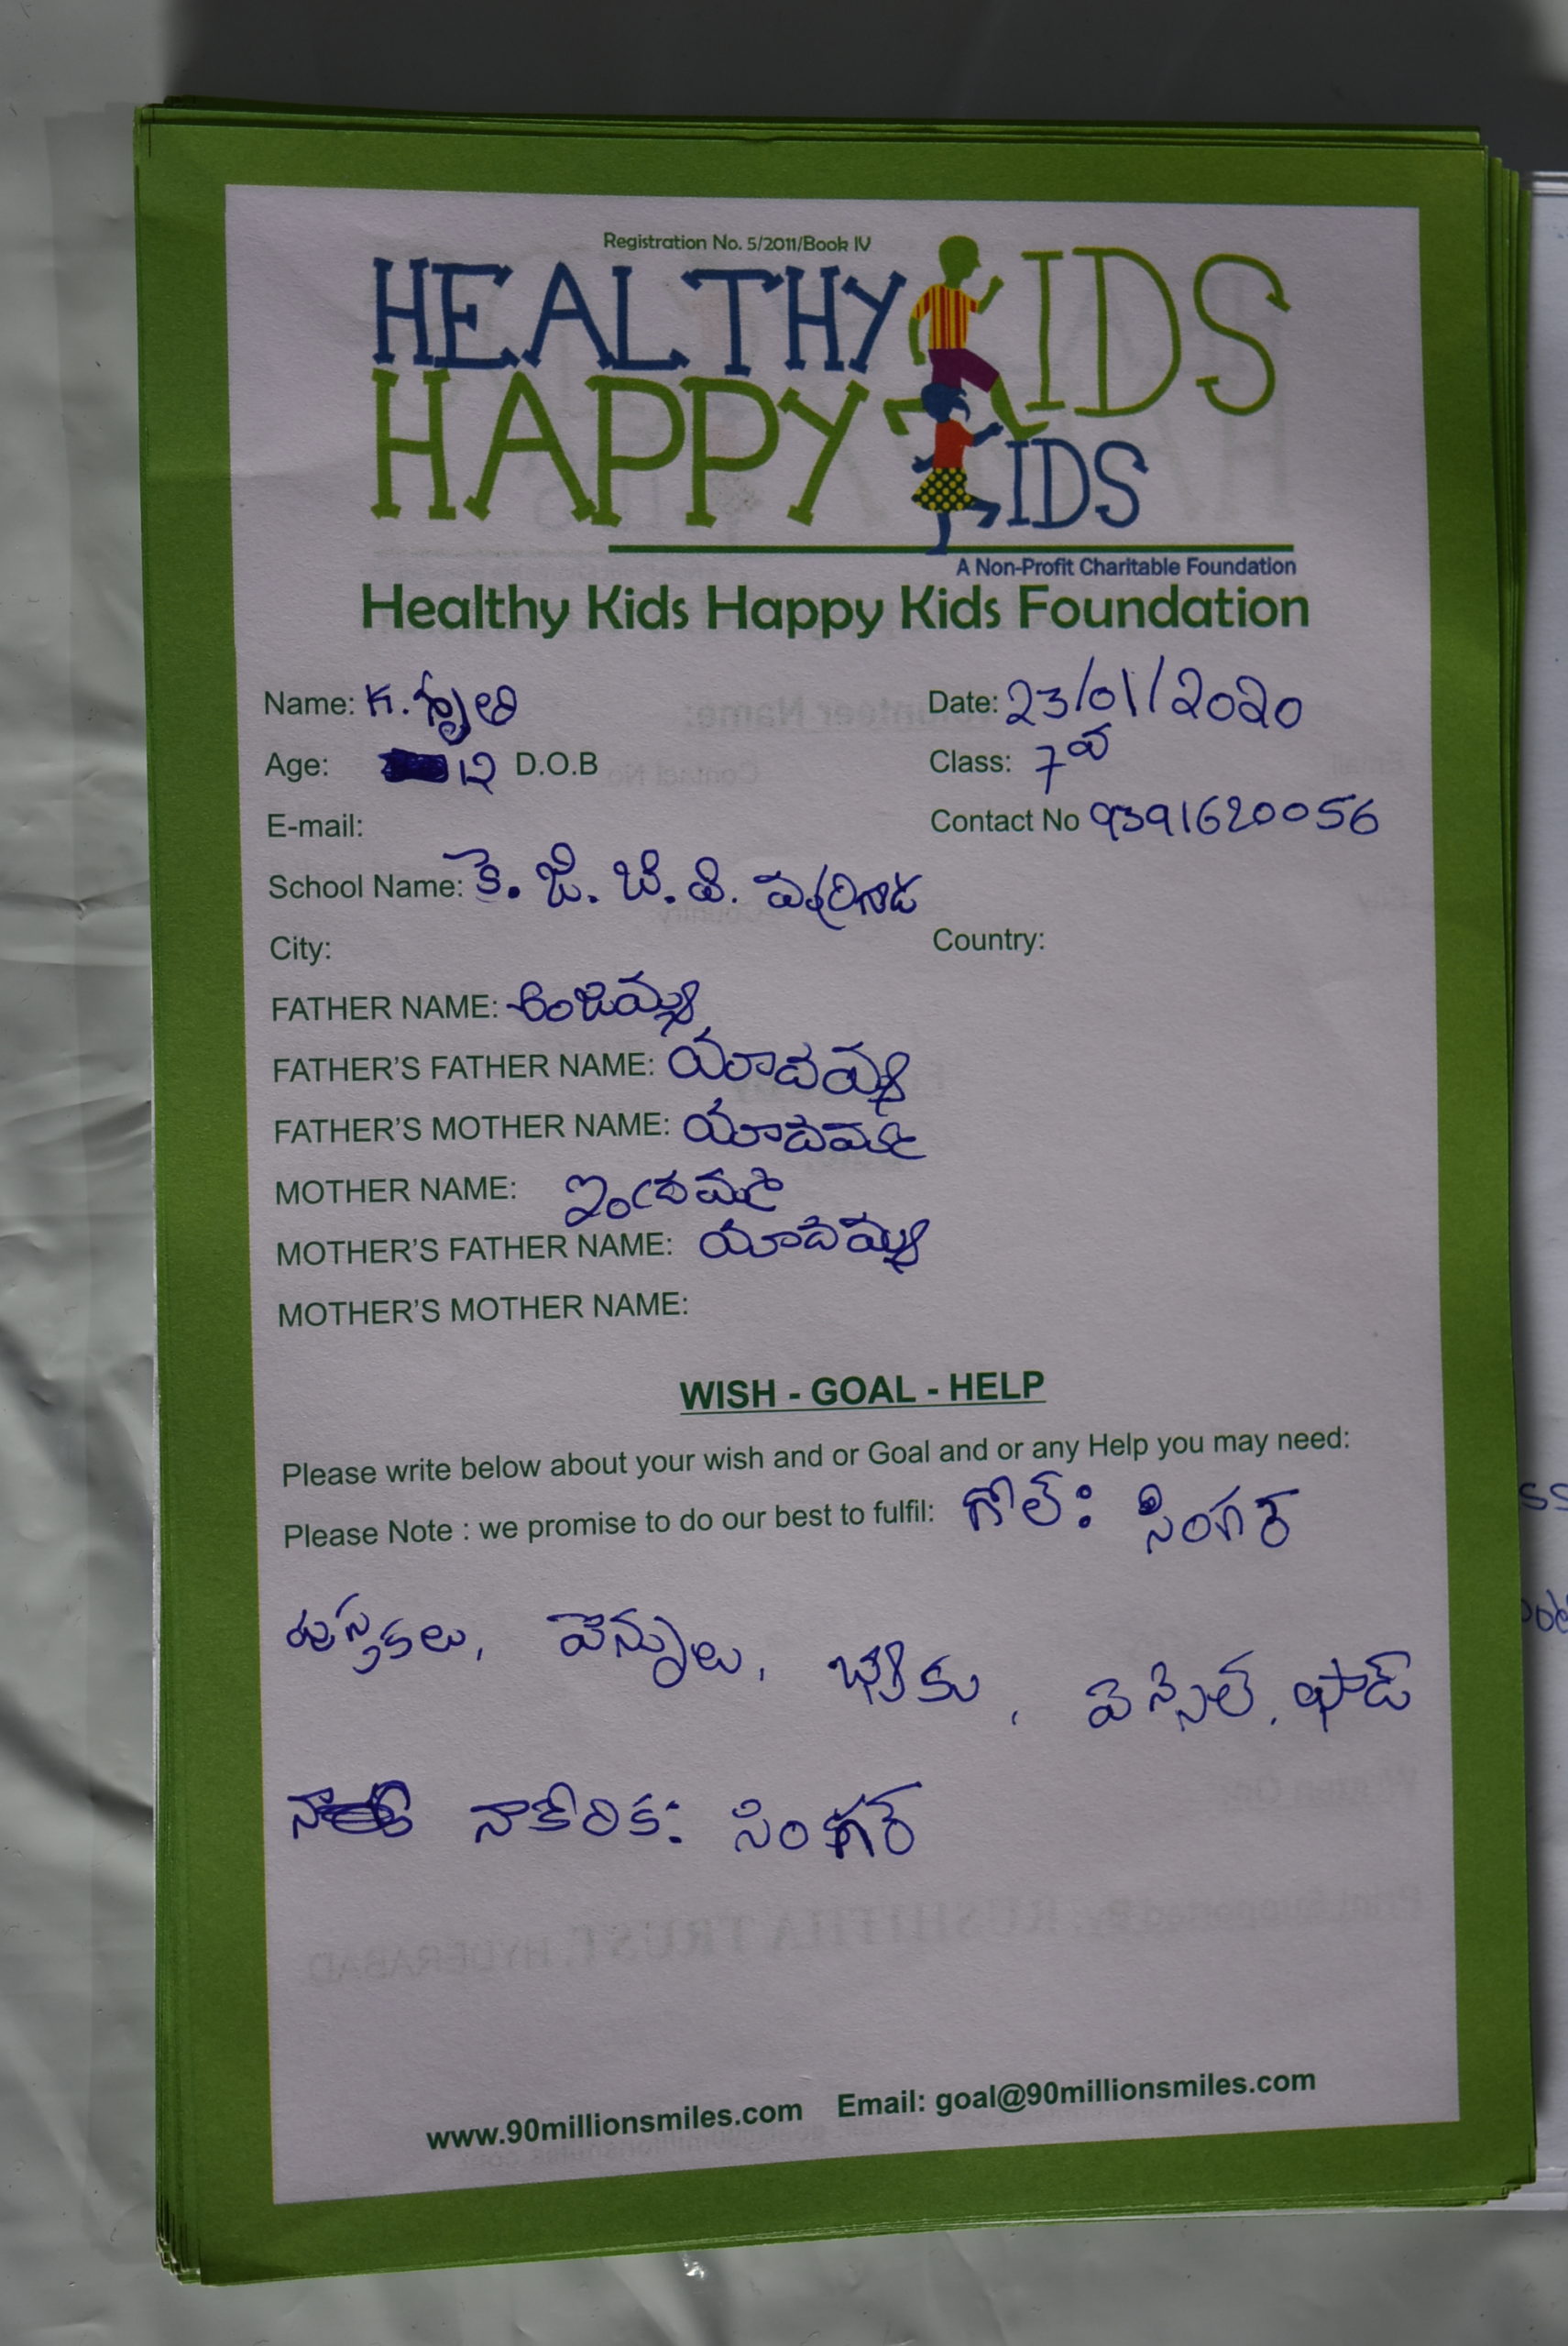 Registration No. 5/2011/Book IV
HEALTHY KIDS
HAPPY KIDS
A Non-Profit Charitable Foundation
Healthy Kids Happy Kids Foundation
Name: K. Date: 23/01/2020
Age: 12 D.O.B Class: 7వ
E-mail: Contact No 9391620056
School Name: కె. జి. బి. వి.
City: Country:
FATHER NAME: అంజయ్య
FATHER'S FATHER NAME: యాదయ్య
FATHER'S MOTHER NAME: యాదమ్మ
MOTHER NAME: ఇంద్రమ్మ
MOTHER'S FATHER NAME: యాదయ్య
MOTHER'S MOTHER NAME:
WISH - GOAL - HELP
Please write below about your wish and or Goal and or any Help you may need:
Please Note : we promise to do our best to fulfil: గోల్: సింగర్
పుస్తకలు, పెన్నులు, పెన్సిల్,
నాకోరిక: సింగర్
www.90millionsmiles.com Email: goal@90millionsmiles.com